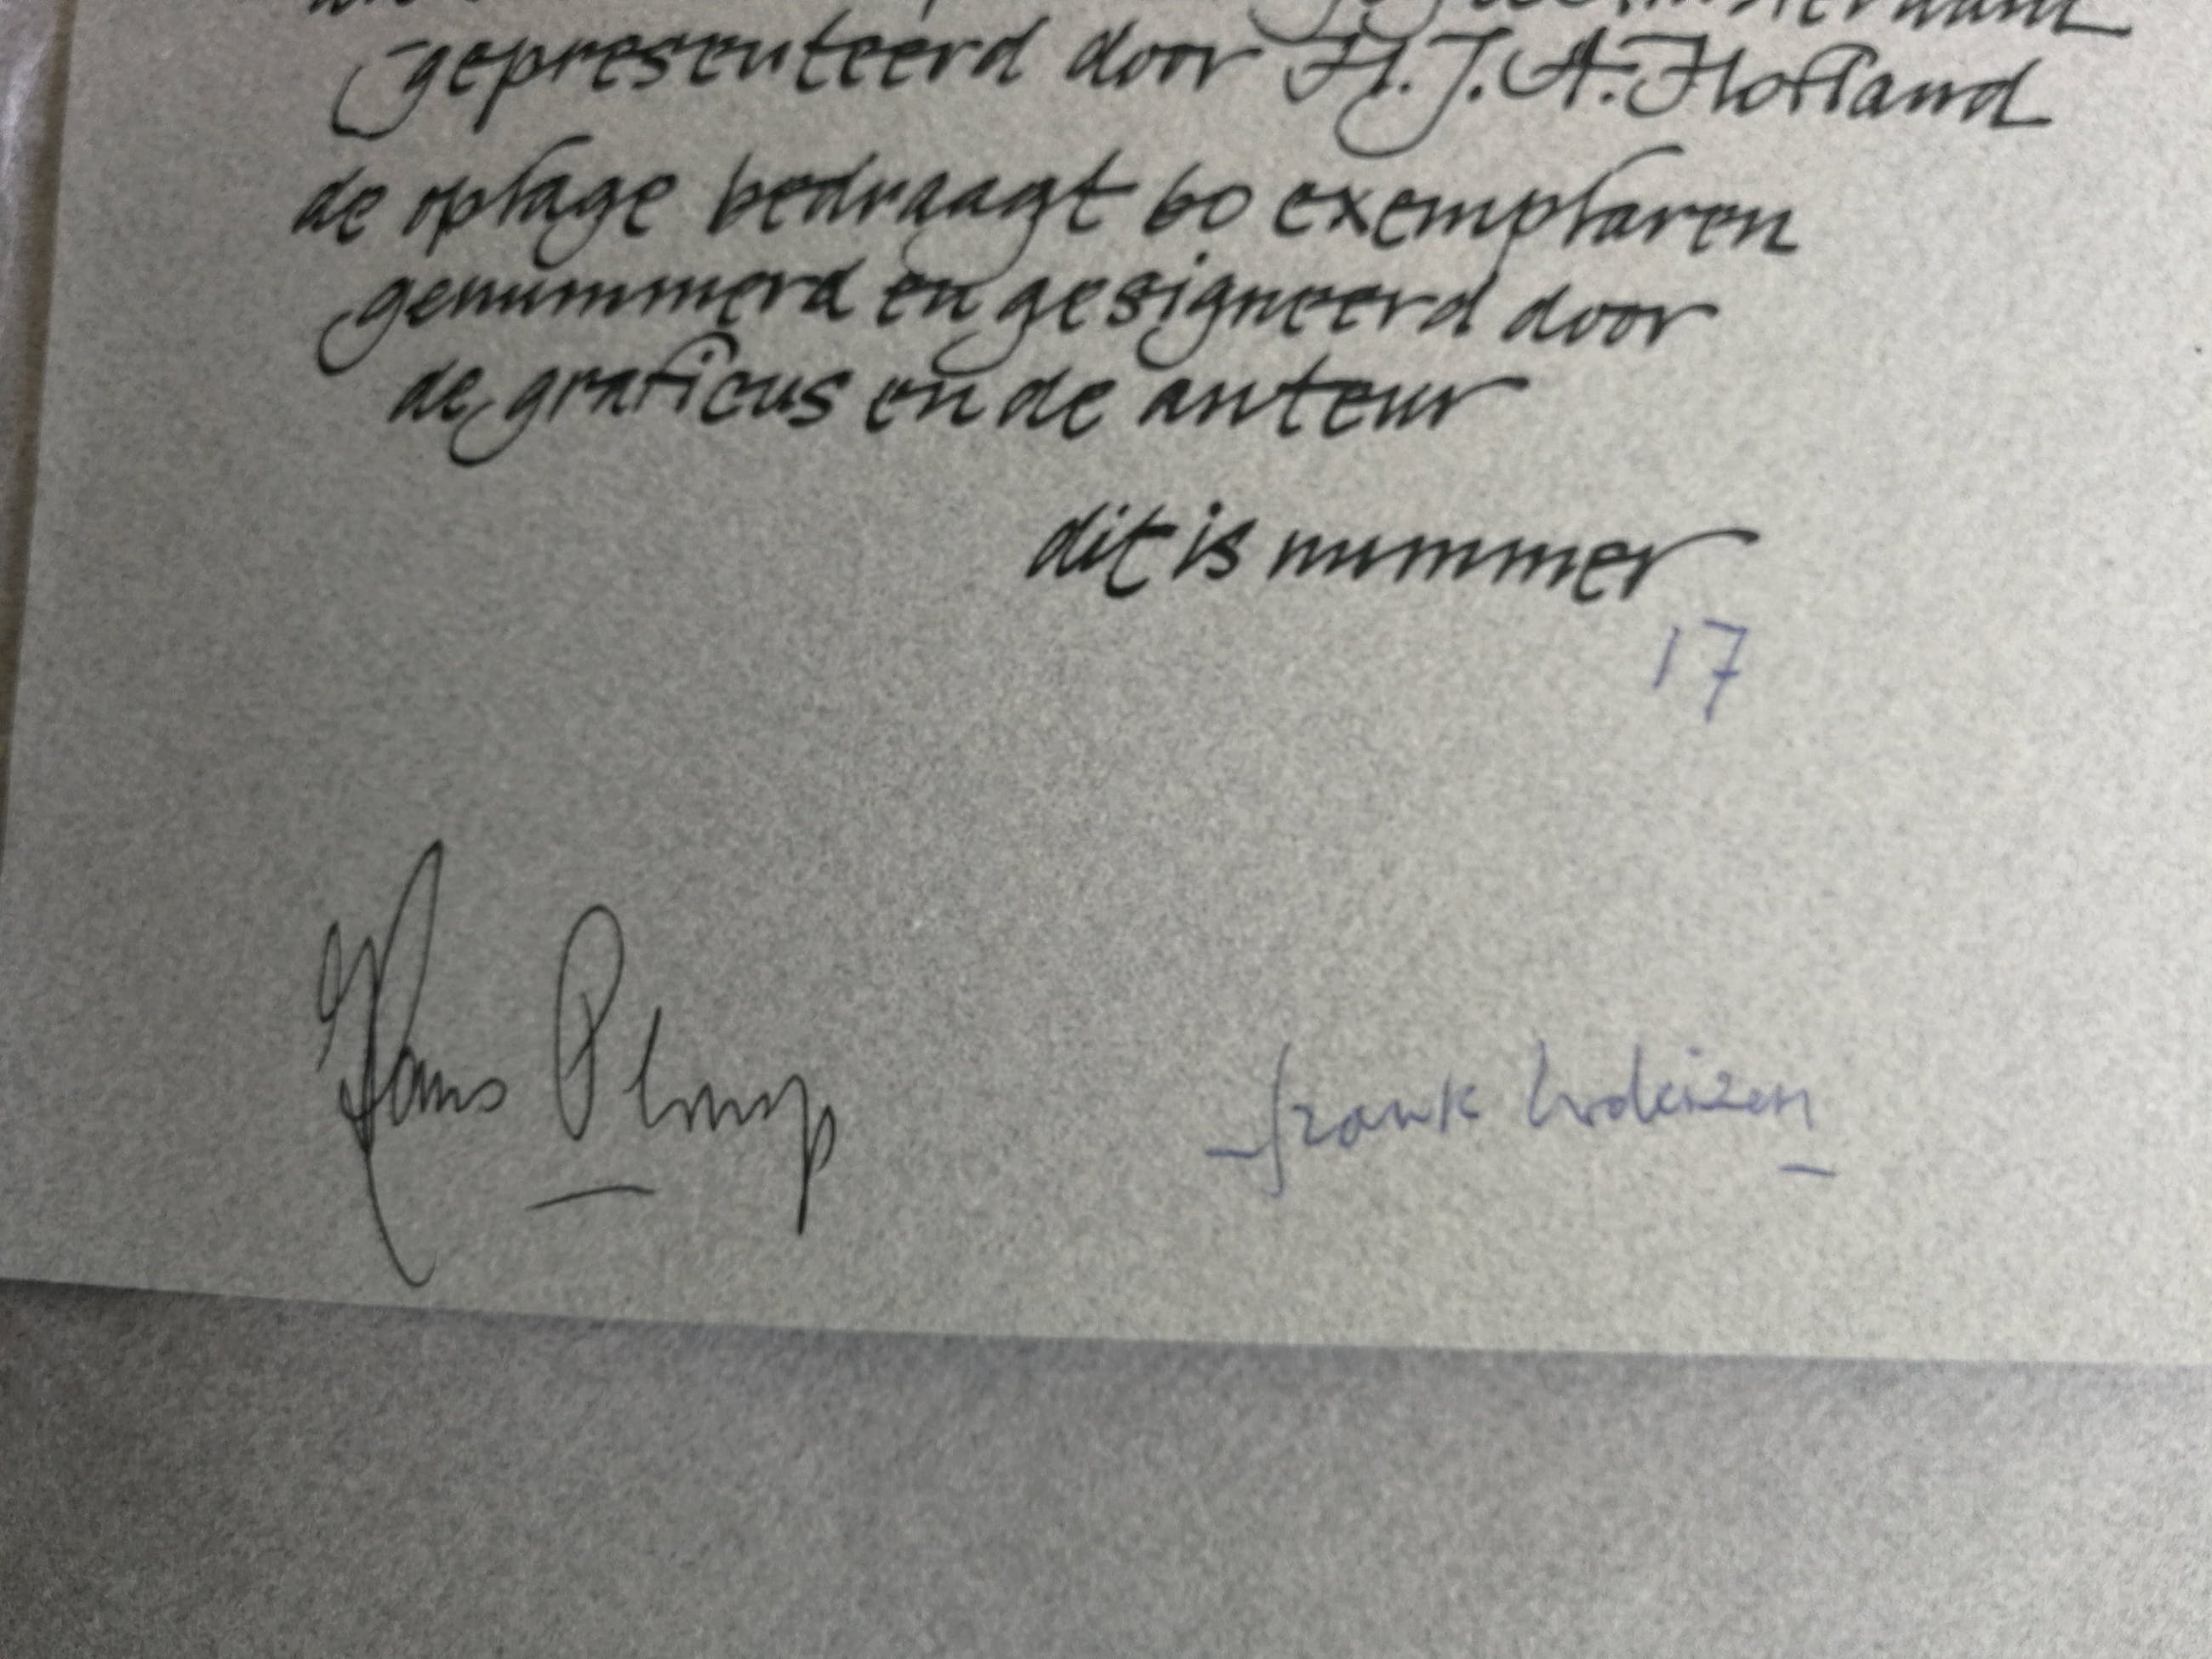 Amsterdam
gepresenteerd door H.J.A. Hofland
de oplage bedraagt 60 exemplaren
genummerd en gesigneerd door
de graficus en de auteur
dit is nummer
17
Hans Plomp
frank lodeizen